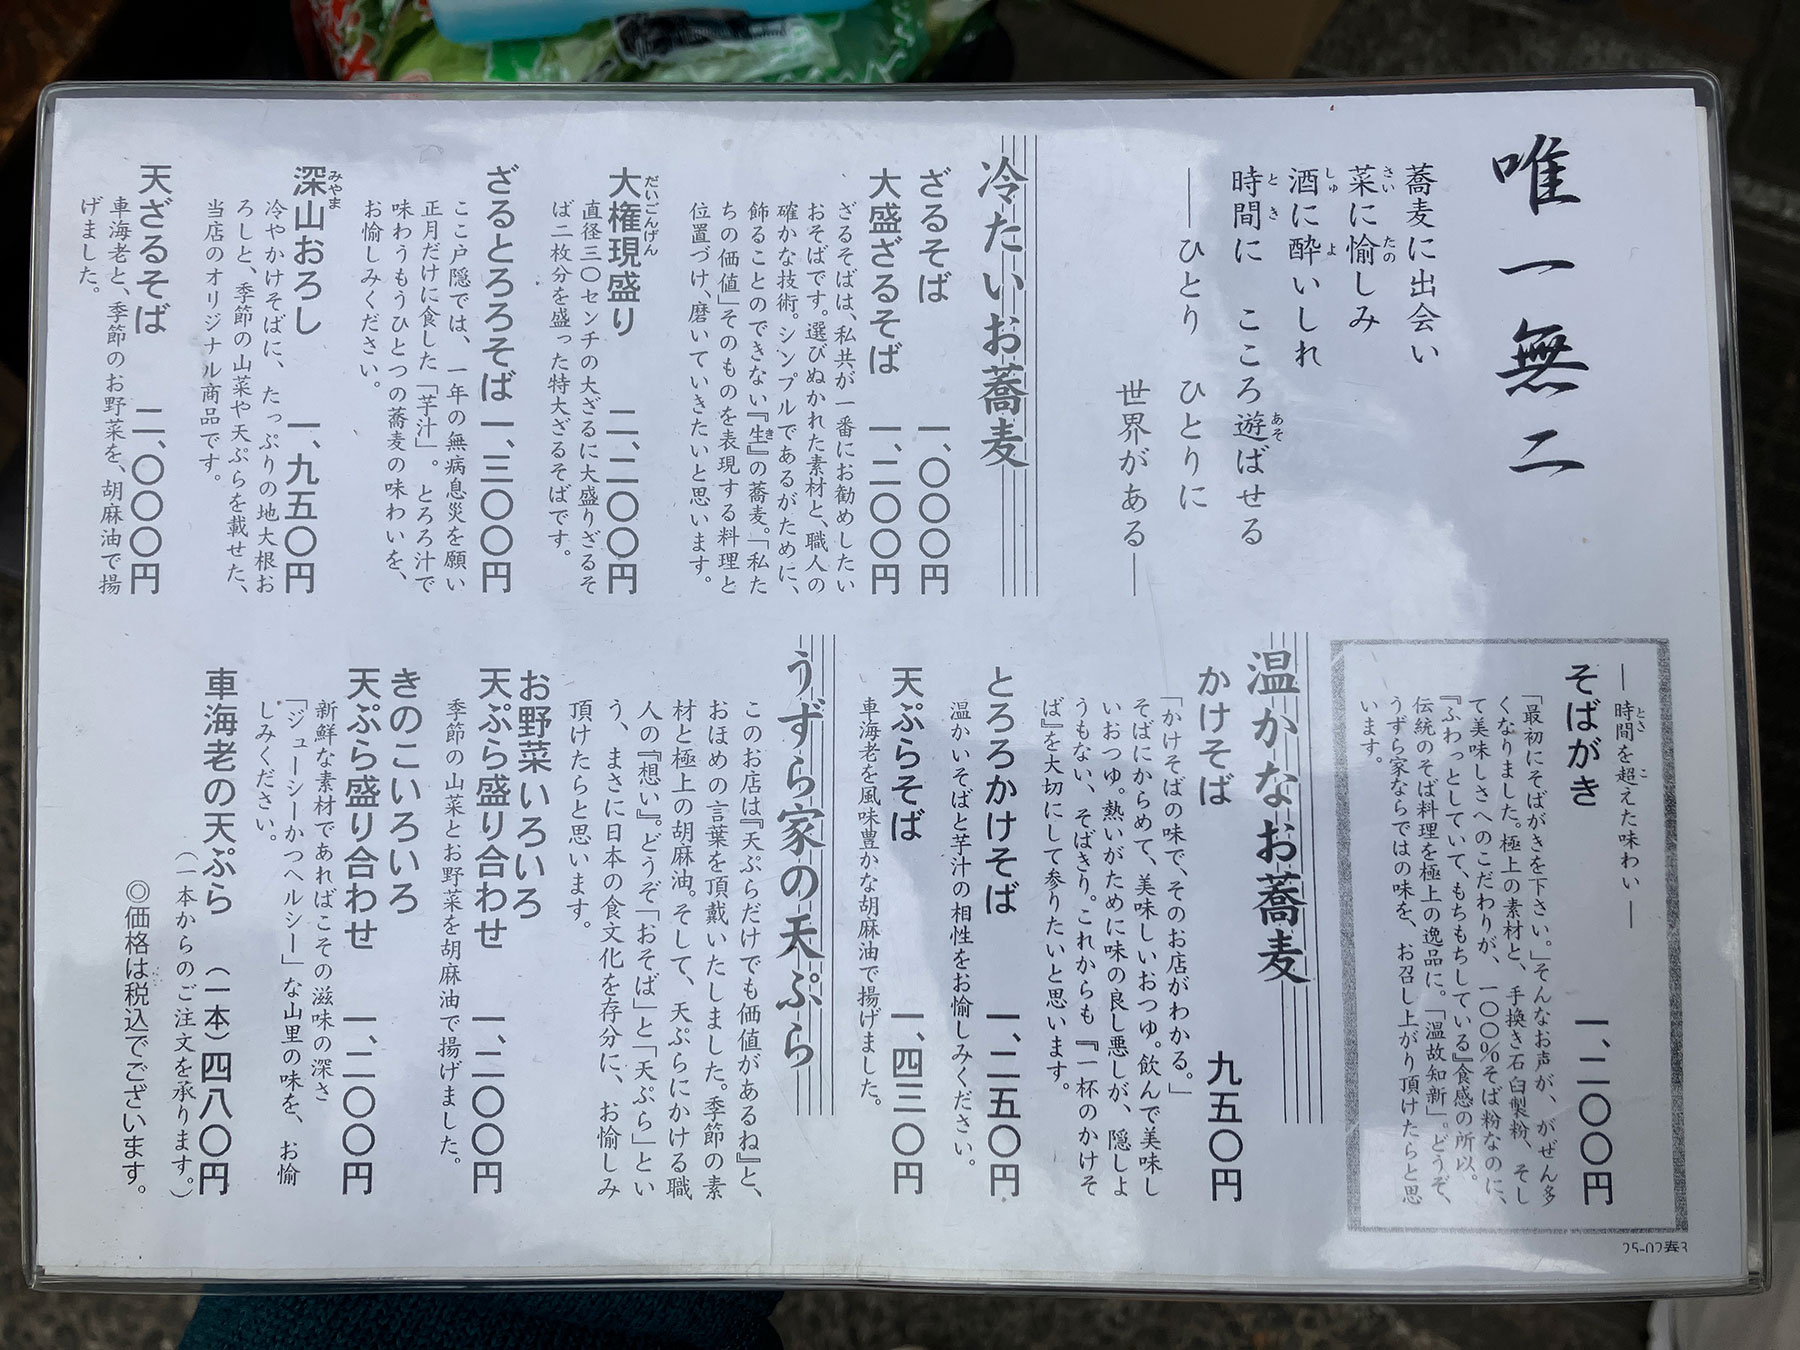 唯一無二
蕎麦に出会い
菜に愉しみ
酒に酔いしれ
時間に こころ遊ばせる
―ひとり ひとりに
世界がある―
冷たいお蕎麦
ざるそば 一、〇〇〇円
大盛ざるそば 一、二〇〇円
ざるそばは、私共が一番にお勧めしたい
おそばです。選びぬかれた素材と、職人の
確かな技術。シンプルであるがために、
飾ることのできない『生』の蕎麦。「私た
ちの価値」そのものを表現する料理と
位置づけ、磨いていきたいと思います。
大権現盛り 二、二〇〇円
直径三〇センチの大ざるに大盛りざるそ
ば二枚分を盛った特大ざるそばです。
ざるとろろそば 一、三〇〇円
ここ戸隠では、一年の無病息災を願い
正月だけに食した「芋汁」。とろろ汁で
味わうもうひとつの蕎麦の味わいを、
お愉しみください。
深山おろし 一、九五〇円
冷やかけそばに、たっぷりの地大根お
ろしと、季節の山菜や天ぷらを載せた、
当店のオリジナル商品です。
天ざるそば 二、〇〇〇円
車海老と、季節のお野菜を、胡麻油で揚
げました。
―時間を超えた味わい―
そばがき 一、二〇〇円
「最初にそばがきを下さい。」そんなお声が、がぜん多
くなりました。極上の素材と、手換き石臼製粉、そし
て美味しさへのこだわりが、一〇〇%そば粉なのに、
『ふわっとしていて、もちもちしている』食感の所以。
伝統のそば料理を極上の逸品に。「温故知新」。どうぞ、
うずら家ならではの味を、お召し上がり頂けたらと思
います。
温かなお蕎麦
かけそば 九五〇円
「かけそばの味で、そのお店がわかる。」
そばにからめて、美味しいおつゆ。飲んで美味し
いおつゆ。熱いがために味の良し悪しが、隠しよ
うもない、そばきり。これからも『一杯のかけそ
ば』を大切にして参りたいと思います。
とろろかけそば 一、二五〇円
温かいそばと芋汁の相性をお愉しみください。
天ぷらそば 一、四三〇円
車海老を風味豊かな胡麻油で揚げました。
うずら家の天ぷら
このお店は『天ぷらだけでも価値があるね』と、
おほめの言葉を頂戴いたしました。季節の素
材と極上の胡麻油。そして、天ぷらにかける職
人の『想い』。どうぞ「おそば」と「天ぷら」とい
う、まさに日本の食文化を存分に、お愉しみ
頂けたらと思います。
お野菜いろいろ
天ぷら盛り合わせ 一、二〇〇円
季節の山菜とお野菜を胡麻油で揚げました。
きのこいろいろ
天ぷら盛り合わせ 一、二〇〇円
新鮮な素材であればこその滋味の深さ
「ジューシーかつヘルシー」な山里の味を、お愉
しみください。
車海老の天ぷら (一本)四八〇円
(一本からのご注文を承ります。)
◎価格は税込でございます。
25-02春3
さい
たの
しゅ
よ
とき
あそ
き
だいごんげん
みやま
とき
こ